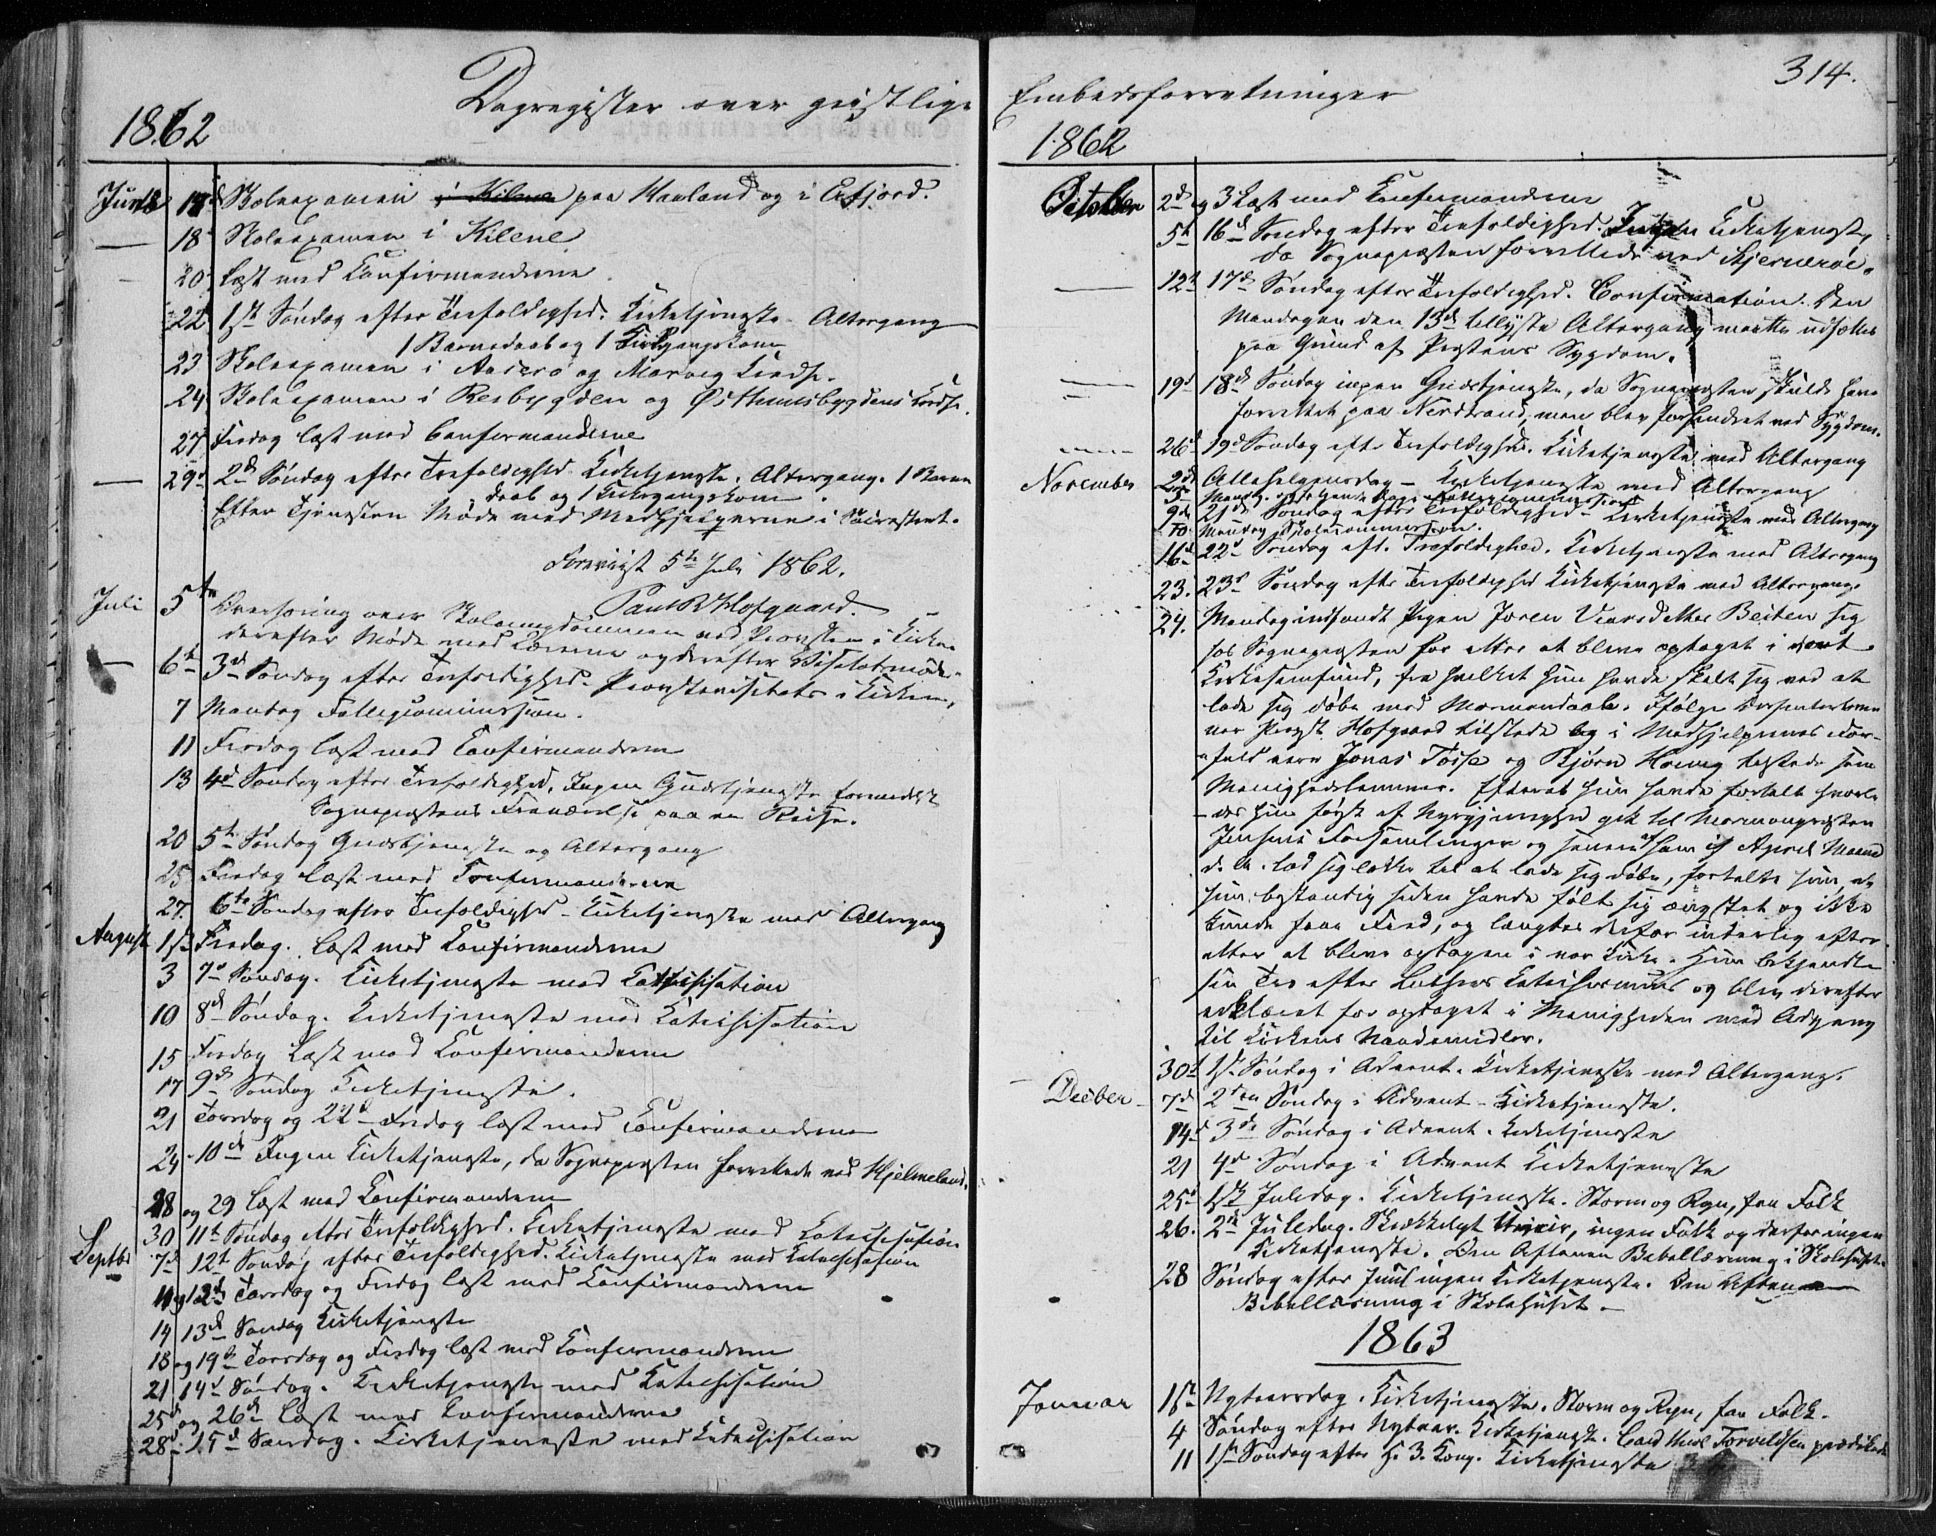 Dagregister over geistlige Embedsforretninger
314.
1862
Juni 17 Skoleexamen i Kilene paa Hauland og i Erfjord.
18 Skoleexamen i Kilene
20 Læst med Confirmanderne
22 1ste Søndag efter Trefoldighed. Kirketjeneste Altergang
1 Barnedaab og 1 Kirkegangskone
23 Skoleexamen i og Marvig Kreds.
24 Skoleexamen i og Østhunsbygdens Kreds.
27 Fredag læst med Confirmanderne
29d 2d Søndag efter Trefoldighed. Kirketjeneste. Altergang. 1 Barne
daab og 1 Kirkegangskone.
Efter Tjenesten Møde med Medhjelperne i
5te Juli 1862.
Juli 5te Overhøring over Skoleungdommen ved Provsten i Kirken
Paul B Hofgaard
derefter Møde med Lærerne og derefter
6te 3d Søndag efter Trefoldighed. Provstevisitats i Kirken,
7 Mandag Fattigcommission.
11 Fredag læst med Confirmanderne
13 4d Søndag efter Trefoldighed. Ingen Gudstjeneste formedelst
Sognepræstens Fraværelse paa en Reise.
20 5te Søndag Gudstjeneste og Altergang
25 Fredag læst med Confirmanderne
27. 6te Søndag efter Trefoldighed. Kirketjeneste med Altergang
August 1st Fredag. læst med Confirmanderne
3 7d Søndag. Kirketjeneste med Catechisation
10 8d Søndag. Kirketjeneste med Katechisation
15 Fredag Læst med Confirmanderne
17 9d Søndag Kirketjeneste.
21 Torsdag og 22d Fredag læst med Confirmanderne
24 10de Ingen Kirketjeneste, da Sognepræsten forrettede ved Hjelmeland.
28 og 29 læst med Confirmanderne
30 11te Søndag efter Trefoldighed. Kirketjeneste med Katechisation
Septbr 7d 12te Søndag efter Trefoldighed. Kirketjeneste med Katechisation
11 og 12d Torsdag og Fredag læst med Confirmanderne
14 13d Søndag Kirketjeneste
18 og 19de Torsdag og Fredag læst med Confirmanderne
21 14d Søndag. Kirketjeneste med Katechisation
25d og 26de Læst med Confirmanderne
28d 15d Søndag. Kirketjeneste med Katechisation
1862
October 2d og 3 Læst med Confirmanderne
5te 16d Søndag efter Trefoldighed. Ingen Kirketjeneste,
da Sognepræsten forrettede ved Hjerneröe.
12te 17de Søndag efter Trefoldighed. Confirmation. Den
Mandagen den 13de tillyste Altergang maatte udsættes
paa Grund af Præstens Sygdom.
19d 18de Søndag ingen Gudstjeneste, da Sognepræsten skulde have
forrettet paa Nerstrand, men blev forhindret ved Sygdom.
26d 19d Søndag eft. Trefoldighed. Kirketjeneste med Altergang
November 2d Allehelgensdag – Kirketjeneste med Altergang
9de 21de Søndag efter Trefoldighed – Kirketjeneste med Altergang
10. Mandag Skolecommission.
16d 22d Søndag eft. Trefoldighed. Kirketjeneste med Altergang
23. 23d Søndag efter Trefoldighed Kirketjeneste med Altergang.
24. Mandag indfandt Pigen Joren Beiten sig
hos Sognepræsten for atter at blive optaget i vort
Kirkesamfund, fra hvilket hun havde skilt sig ved at
lade sig døbe med Mormondaab. Ifølge
var Provst Hofgaard tilstede og i Medhjelpernes For-
fald vare Jonas og Bjørn tilstede som
Menighedslemmer. Efterat hun havde fortalt hvorle-
des hun først af Nysgjerrighed gik til Mormonpræsten
Jensens Forsamlinger og senere af ham i April Maaned
d. A. lod sig lokke til at lade sig døbe, fortalte hun, at
hun bestandig siden havde følt sig ængstet og ikke
kunde faae Fred, og længtes derfor inderlig efter
atter at blive optagen i vor Kirke. Hun bekjendte
sin Tro efter Luthers Catechismus og blev derefter
erklæret for optaget i Menigheden med Adgang
til Kirkens Naademidler.
30te 1ste Søndag i Advent. Kirketjeneste med Altergang.
Decber 7d 2den Søndag i Advent – Kirketjeneste.
14d 3de Søndag i Advent. Kirketjeneste
21 4de Søndag i Advent Kirketjeneste
25d 1ste Juledag. Kirketjeneste. Storm og Regn, faa Folk
26. 2de Juledag. Skrækkeligt Uveir, ingen Folk og derfor ingen
Kirketjeneste. Om Aftenen Bibellæsning i Skolehuset.
28 Søndag efter Juul ingen Kirketjeneste. Om Aftenen
Bibellæsning i Skolehuset –
1863
Januar 1ste Nytaarsdag. Kirketjeneste. Storm og Regn, faa Folk.
4 Søndag efter Nytaar. Kirketjeneste. Cand theol Torvildsen prædikede
11 1ste Søndag efter H. 3. Kong. Kirketjeneste